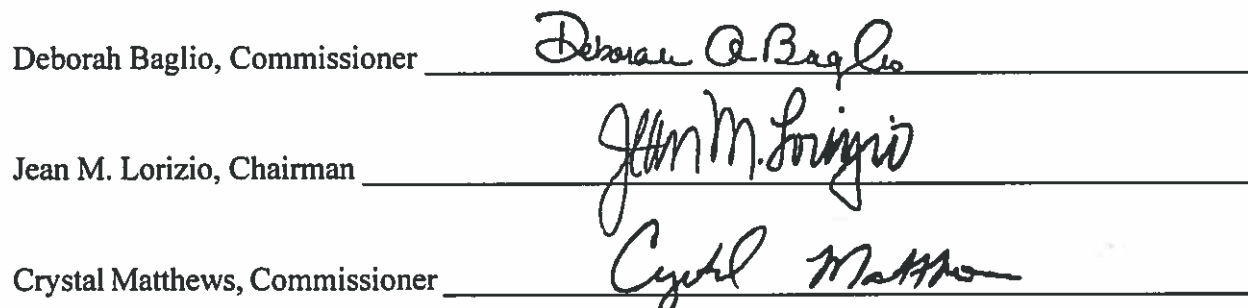 Deborah Baglio, Commissioner Deborah A Baglio
Jean M. Lorizio, Chairman Jean M. Lorizio
Crystal Matthews, Commissioner Crystal Matthews